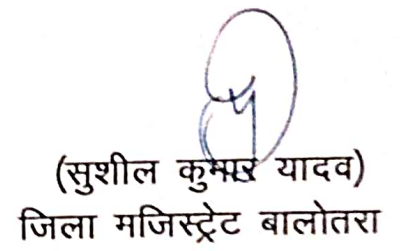 (सुशील कुमार यादव)
जिला मजिस्ट्रेट बालोतरा